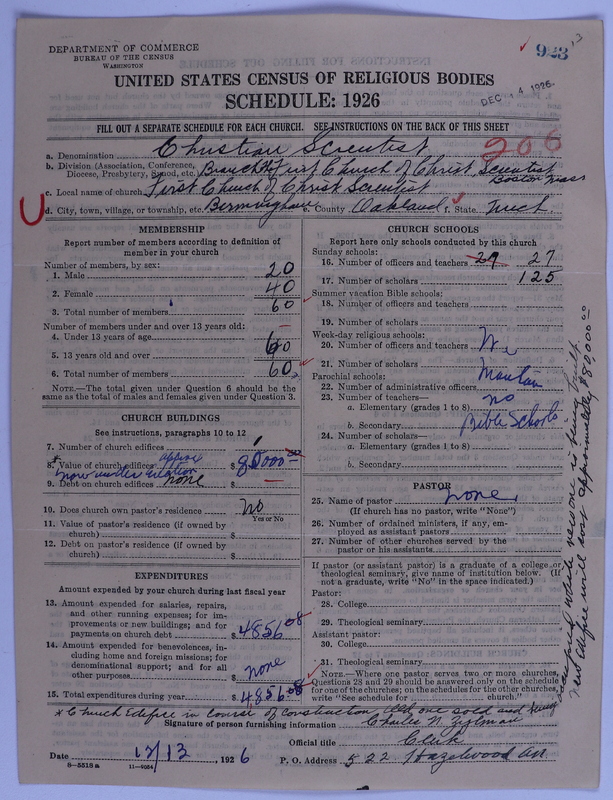 DEPARTMENT OF COMMERCE
BUREAU OF THE CENSUS
WASHINGTON
923
13
DEC 14 1926.
UNITED STATES CENSUS OF RELIGIOUS BODIES
SCHEDULE: 1926
FILL OUT A SEPARATE SCHEDULE FOR EACH CHURCH. SEE INSTRUCTIONS ON THE BACK OF THIS SHEET
206
a. Denomination Christian Scientist
b. Division (Association, Conference, Diocese, Presbytery, Synod, etc. Branch of First Church of Christ Scientist Boston Mass
c. Local name of church First Church of Christ Scientist
d. City, town, village, or township, etc. e. County Oakland f. State
MEMBERSHIP
Report number of members according to definition of member in your church
Number of members, by sex:
1. Male 20
2. Female 40
3. Total number of members 60
Number of members under and over 13 years old:
4. Under 13 years of age
5. 13 years old and over 60
6. Total number of members 60
NOTE.—The total given under Question 6 should be the same as the total of males and females given under Question 3.
CHURCH BUILDINGS
See instructions, paragraphs 10 to 12
7. Number of church edifices 1
8. Value of church edifices $
now under erection
9. Debt on church edifices none $
10. Does church own pastor's residence No
Yes or No
11. Value of pastor's residence (if owned by church) $
12. Debt on pastor's residence (if owned by church) $
EXPENDITURES
Amount expended by your church during last fiscal year
13. Amount expended for salaries, repairs, and other running expenses; for improvements or new buildings; and for payments on church debt $ 4856 08
14. Amount expended for benevolences, including home and foreign missions; for denominational support; and for all other purposes $ none
15. Total expenditures during year $ 4856 08
CHURCH SCHOOLS
Report here only schools conducted by this church
Sunday schools:
16. Number of officers and teachers 29 27
17. Number of scholars 125
Summer vacation Bible schools:
18. Number of officers and teachers
19. Number of scholars
Week-day religious schools:
20. Number of officers and teachers We
21. Number of scholars
Parochial schools:
22. Number of administrative officers Maintain
23. Number of teachers— no
a. Elementary (grades 1 to 8)
b. Secondary Bible Schools
24. Number of scholars—
a. Elementary (grades 1 to 8)
b. Secondary
PASTOR
25. Name of pastor none
(If church has no pastor, write "None")
26. Number of ordained ministers, if any, employed as assistant pastors
27. Number of other churches served by the pastor or his assistants
If pastor (or assistant pastor) is a graduate of a college or theological seminary, give name of institution below. (If not a graduate, write "No" in the space indicated.)
Pastor:
28. College
29. Theological seminary
Assistant pastor:
30. College
31. Theological seminary
NOTE.—Where one pastor serves two or more churches, Questions 28 and 29 should be answered only on the schedule for one of the churches; on the schedules for the other churches, write "See schedule for ............ church."
* Church Edifice in course of construction Old one sold and
occupied while new one is being built
new edifice will cost approximately $80,000
Signature of person furnishing information Charles N.
Official title Clerk
Date 12/13, 1926 P. O. Address 522 Hazelwood
8—5518a 11—9054